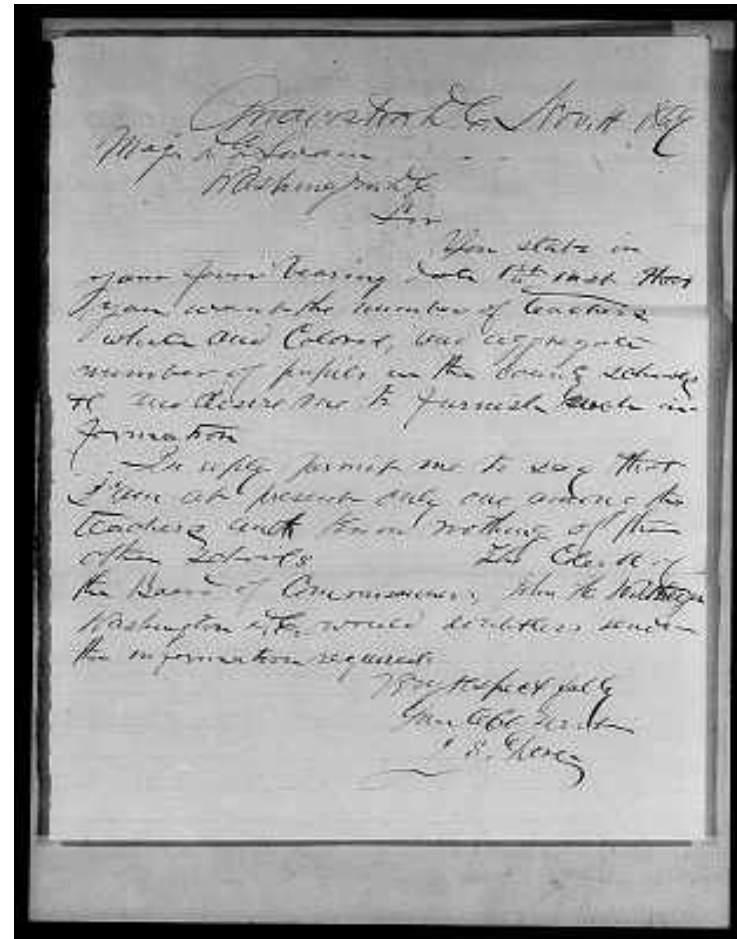 D.C. Nov.
Maj.
Washington D.C.
Sir
You state in
your favor bearing date inst. that
you want the number of teachers
white and Colored, and aggregate
number of pupils in the County schools
&c and desire me to furnish such in-
formation
In reply permit me to say that
I am at present only one among the
teachers and know nothing of the
other schools The Clerk of
the Board of Commissioners, John H.
Washington D.C. would doubtless render
the information required.
Very Respectfully
Your Obt. Servt.